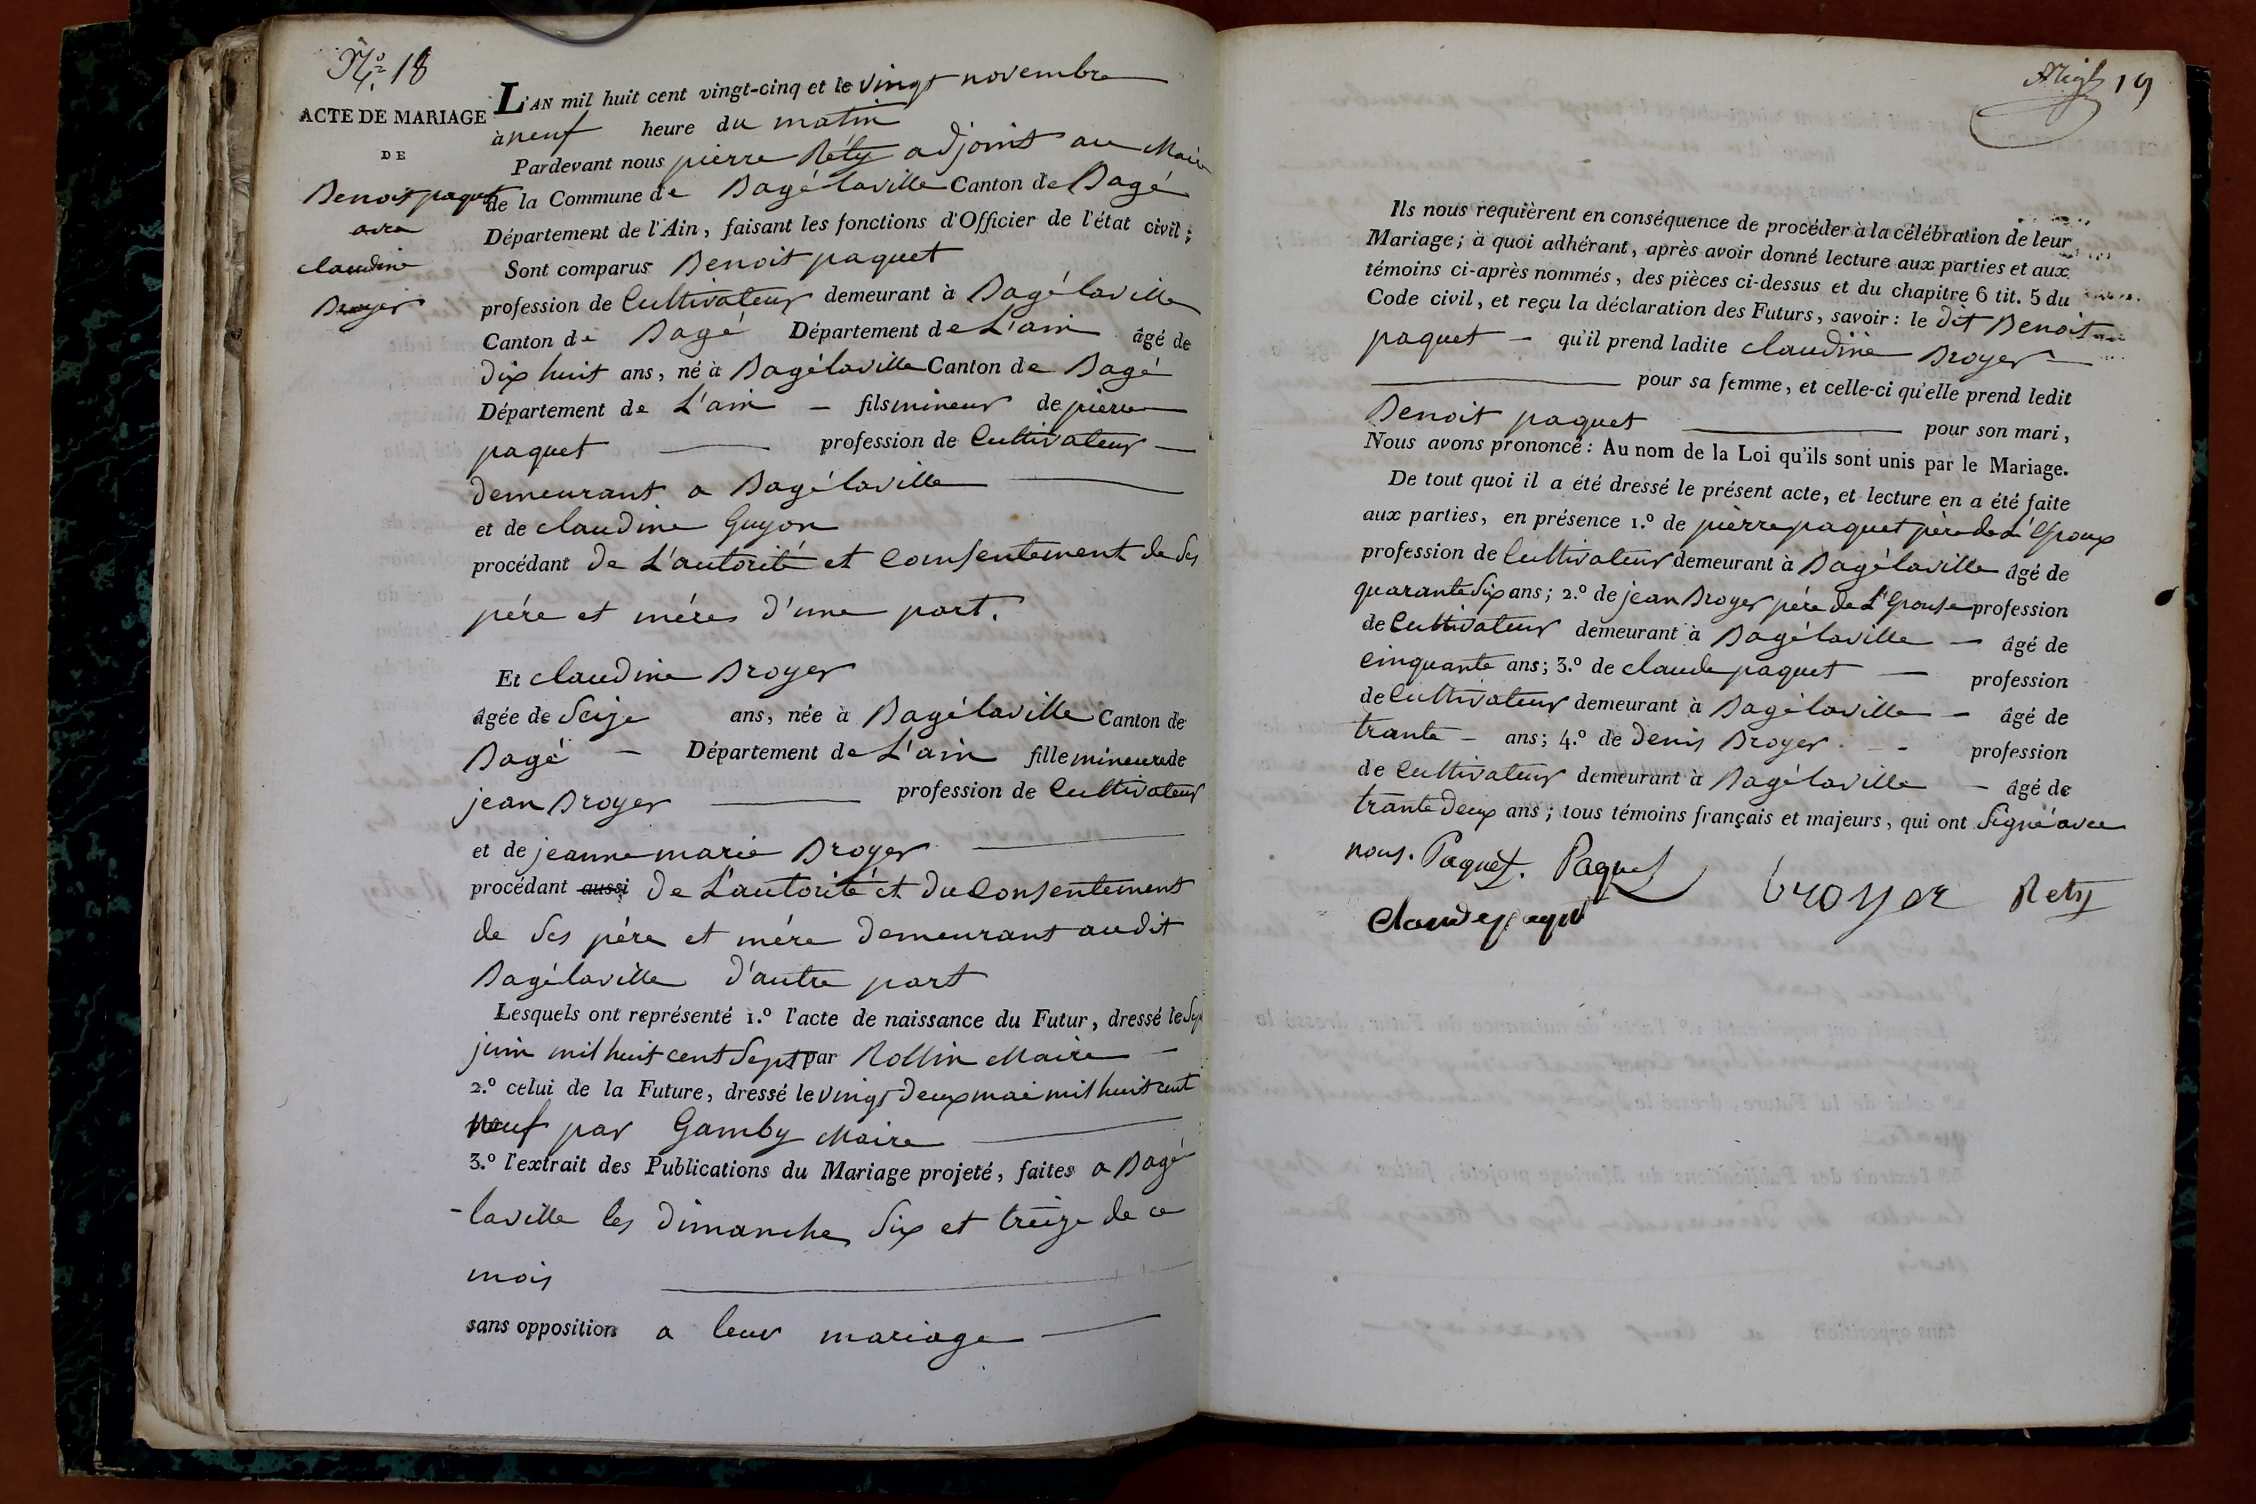 N.º 18
ACTE DE MARIAGE
DE
Benoit paquet
avec
claudine
Broyer
L'AN mil huit cent vingt-cinq et le vingt novembre
à neuf heure du matin
Pardevant nous pierre Réty adjoint au Maire
de la Commune de Bagélaville Canton de Bagé
Département de l'Ain, faisant les fonctions d'Officier de l'état civil;
Sont comparus Benoit paquet
profession de Cultivateur demeurant à Bagélaville
Canton de Bagé Département de L'ain âgé de
dix huit ans, né à Bagélaville Canton de Bagé
Département de L'ain - fils mineur de pierre
paquet profession de Cultivateur
demeurant a Bagélaville
et de claudine Guyon
procédant de L'autorité et Consentement de Ses
pére et méres d'une part.
Et claudine Broyer
âgée de Seize ans, née à Bagélaville Canton de
Bagé - Département de L'ain fille mineure de
jean Broyer profession de Cultivateur
et de jeanne marie Broyer
procédant aussi de L'autorité et du Consentement
de Ses pére et mére demeurant audit
Bagélaville d'autre part
Lesquels ont représenté 1.º l'acte de naissance du Futur, dressé le
juin mil huit cent Sept par Rollin Maire
2.º celui de la Future, dressé le vingt deux mai mil huit cent
neuf par Gamby Maire
3.º l'extrait des Publications du Mariage projeté, faites a Bagé
-laville les dimanche Six et treize de ce
mois
sans opposition a leur mariage
19
Ils nous requièrent en conséquence de procéder à la célébration de leur
Mariage; à quoi adhérant, après avoir donné lecture aux parties et aux
témoins ci-après nommés, des pièces ci-dessus et du chapitre 6 tit. 5 du
Code civil, et reçu la déclaration des Futurs, savoir: le dit Benoit
paquet - qu'il prend ladite claudine Broyer
pour sa femme, et celle-ci qu'elle prend ledit
Benoit paquet pour son mari,
Nous avons prononcé: Au nom de la Loi qu'ils sont unis par le Mariage.
De tout quoi il a été dressé le présent acte, et lecture en a été faite
aux parties, en présence 1.º de pierre paquet père de L'Epoux
profession de Cultivateur demeurant à Bagélaville âgé de
quarante Six ans; 2.º de jean Broyer pére de L'Epouse profession
de Cultivateur demeurant à Bagélaville - âgé de
Cinquante ans; 3.º de claude paquet - profession
de Cultivateur demeurant à Bagélaville - âgé de
trante - ans; 4.º de denis Broyer. - - profession
de Cultivateur demeurant à Bagélaville - âgé de
trante deux ans; tous témoins français et majeurs, qui ont Signé avec
nous. Paquet. Paquet broyer Rety
Claude paquet